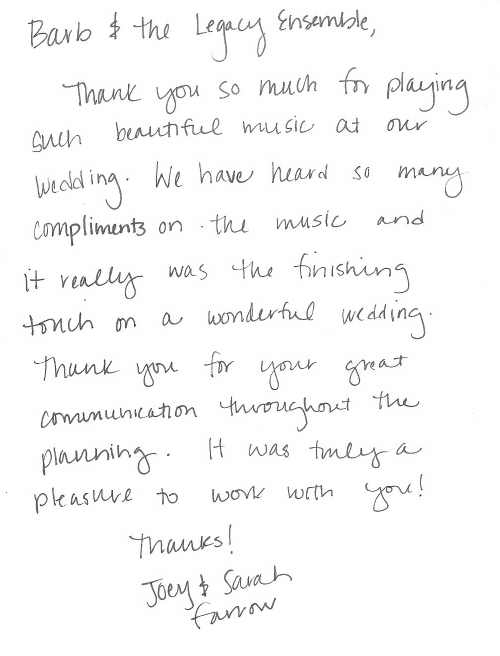 Barb & the Legacy Ensemble,
Thank you so much for playing
such beautiful music at our
wedding. We have heard so many
compliments on the music and
it really was the finishing
touch on a wonderful wedding.
Thank you for your great
communication throughout the
planning. It was truly a
pleasure to work with you!
Thanks!
Joey & Sarah
Farrow